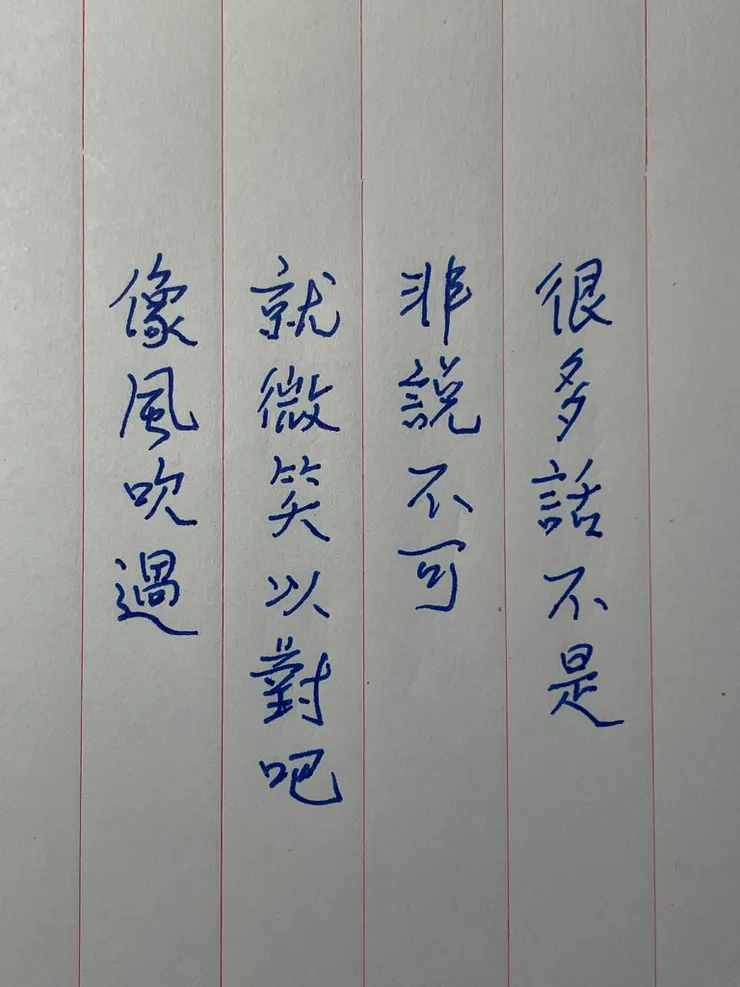 很多話不是
非說不可
就微笑以對吧
像風吹過